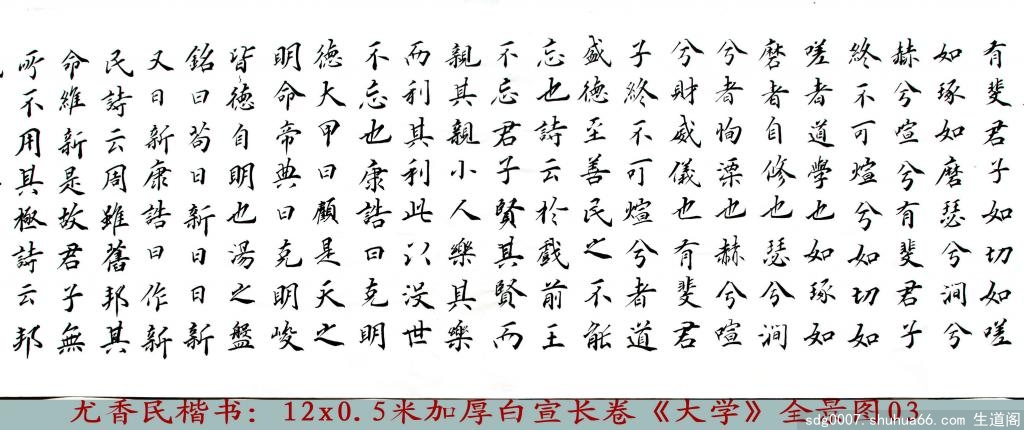 有斐君子如切如嗟
如琢如磨瑟兮澗兮
赫兮喧兮有斐君子
終不可煊兮如切如
嗟者道學也如琢如
磨者自修也瑟兮澗
兮者恂溧也赫兮喧
兮財威儀也有斐君
子終不可煊兮者道
盛德至善民之不能
忘也詩云於戲前王
不忘君子賢其賢而
親其親小人樂其樂
而利其利此以没世
不忘也康誥曰克明
德大甲曰顧是天之
明命帝典曰克明峻
皆德自明也湯之盤
銘曰苟日新日日新
又日新康誥曰作新
民詩云周雖舊邦其
命維新是故君子無
所不用其極詩云邦
尤香民楷书：12x0.5米加厚白宣长卷《大学》全景图03
sdg0007.shuhua66.com 生道阁